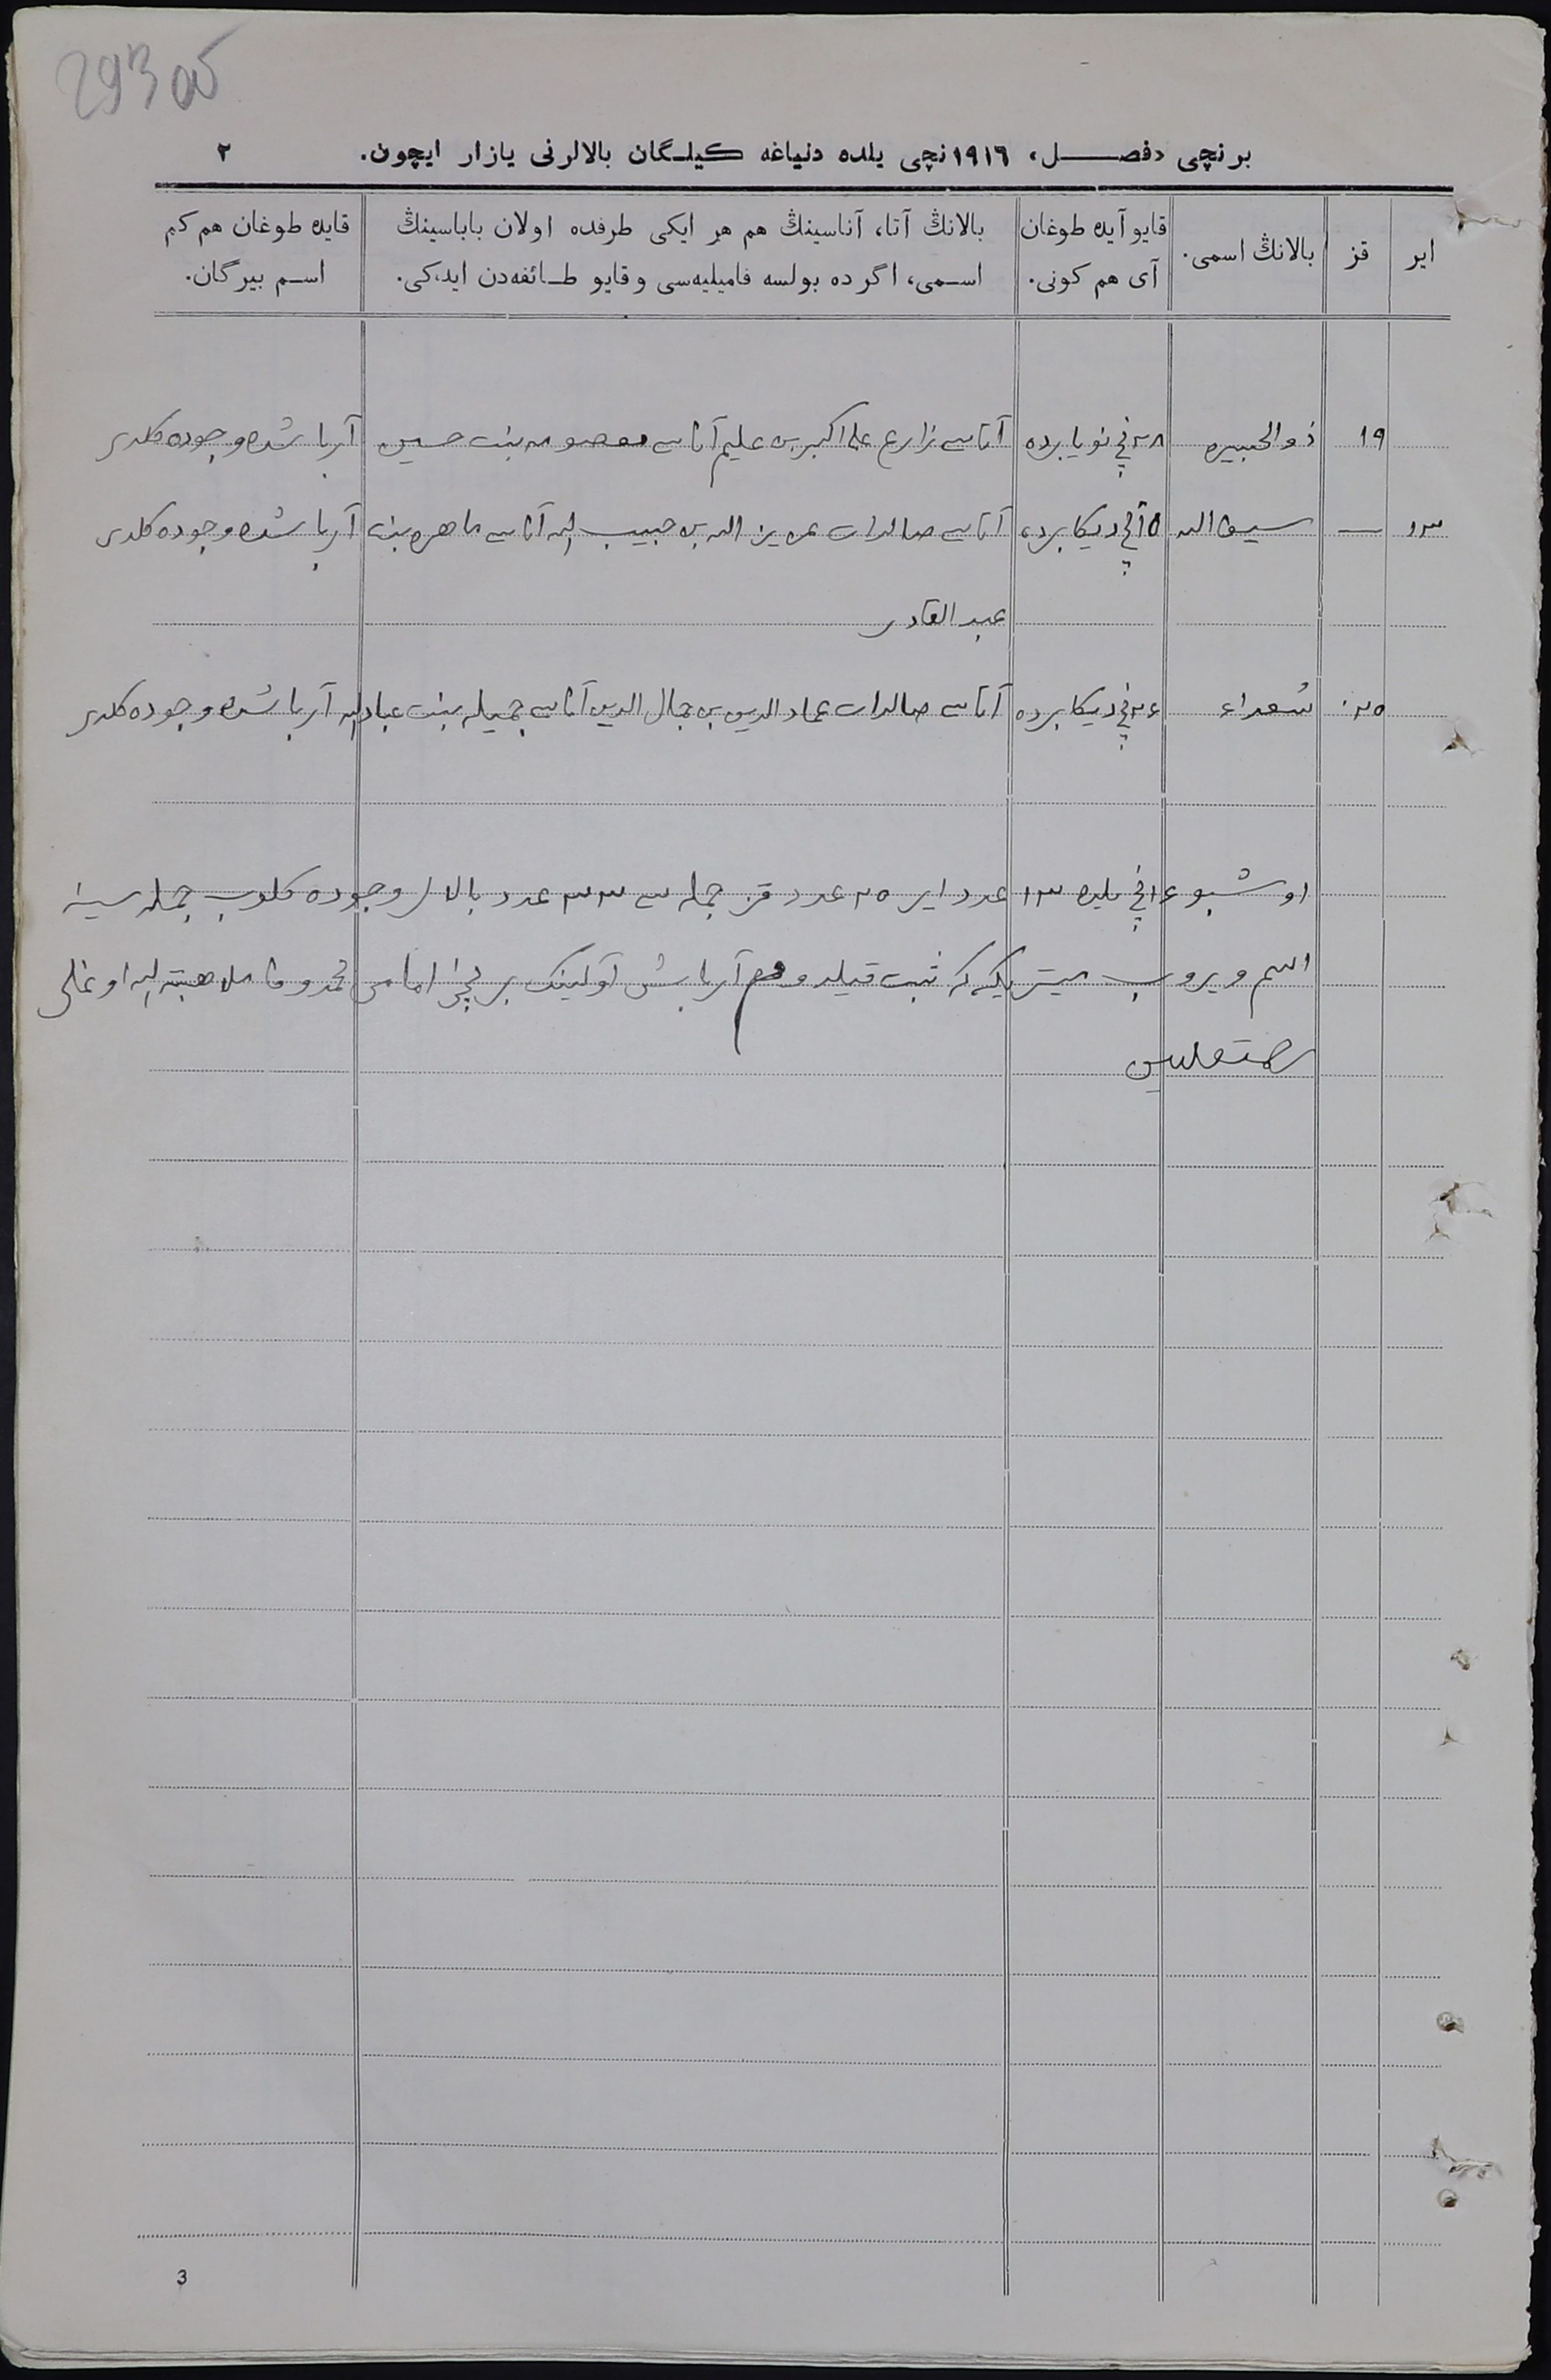 293 об
برنچی «فصل» ١٩١٦نچی یلده دنیاغه کیلگان بالالرنی یازار ایچون. ٢
ایر
قز
بالانڭ اسمی.
قایو آیده طوغان
آی هم کونی.
بالانڭ آتا، آناسینڭ هم هر ایکی طرفده اولان باباسینڭ
اسمی، اگر ده بولسه فامیلیه‌سی و قایو طائفه‌دن ایدکی.
قایده طوغان هم کم
اسم بیرگان.
١٩ ٢٨نچی نویابرده آتاسی زارع علی اکبر بن علیم آناسی معصومه بنت حسین آرباشده وجوده کلدی
١٣ — سیف الله دیکابرده آتاسی صالدات عزیز الله بن حبیب الله آناسی ماهره بنت آرباشده وجوده کلدی
عبد القادر
٢٥ ٢٤نچی دیکابرده آتاسی صالدات عماد الدین بن جمال الدین آناسی جمیله بنت عباد الله آرباشده وجوده کلدی
اوشبو ١٦نچی یلده ١٣ عدد ایر ٢٥ عدد قز جمله سی عدد بالالر وجوده کلوب جمله سینه
اسم ویروب میتریکه که ثبت قیلدم آرباش آولینک برنچی امامی اوغلی
3